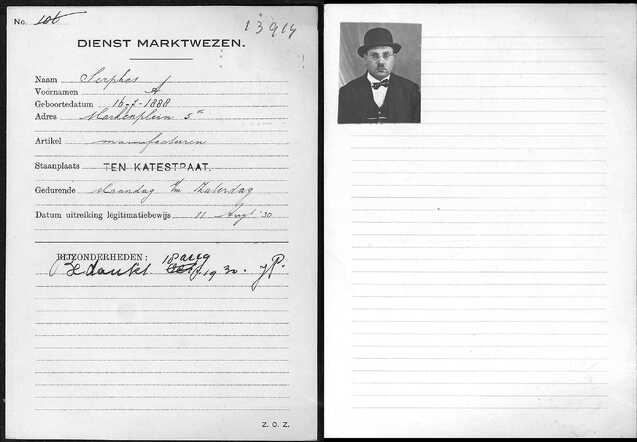 No. 106 13914
DIENST MARKTWEZEN.
Naam Serphos
Voornamen A
Geboortedatum 16-2-1888
Adres Markenplein 5
Artikel manufacturen
Staanplaats TEN KATESTRAAT.
Gedurende Maandag t/m Zaterdag
Datum uitreiking legitimatiebewijs 11 Aug '30
BIJZONDERHEDEN:
Bedankt aug 1930. JP.
Z. O. Z.